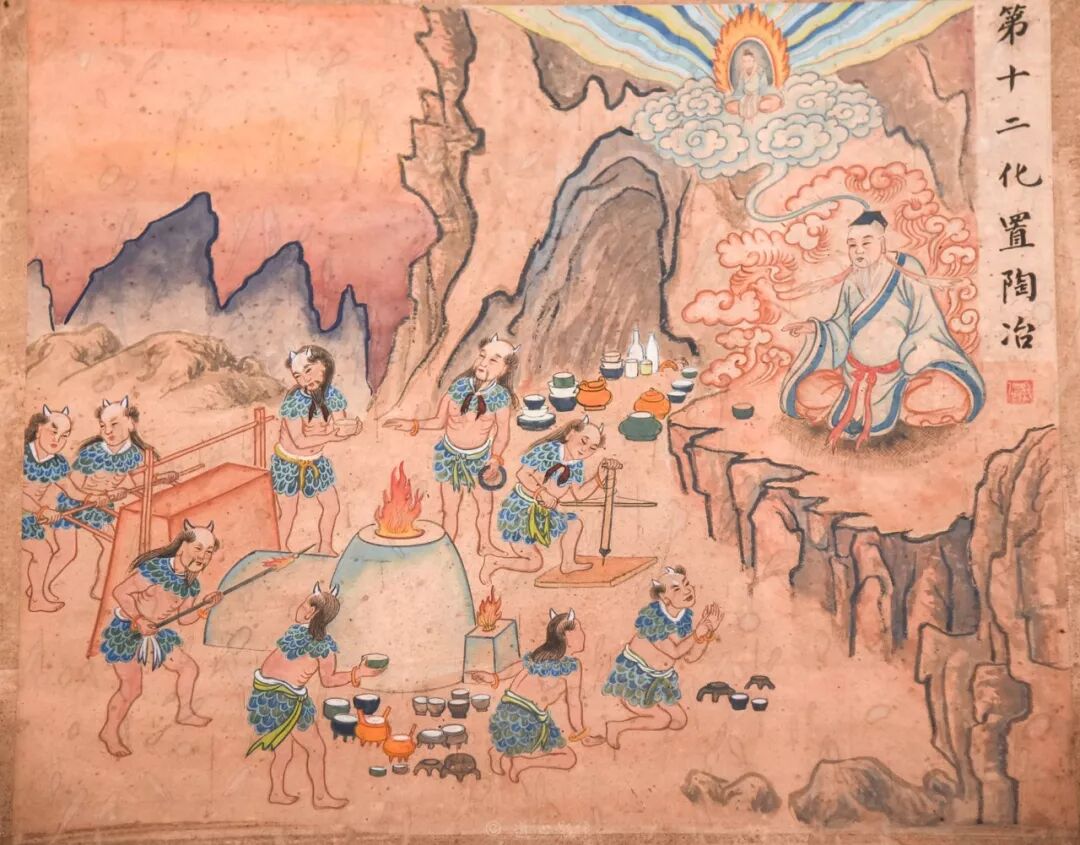 第十二化置陶冶